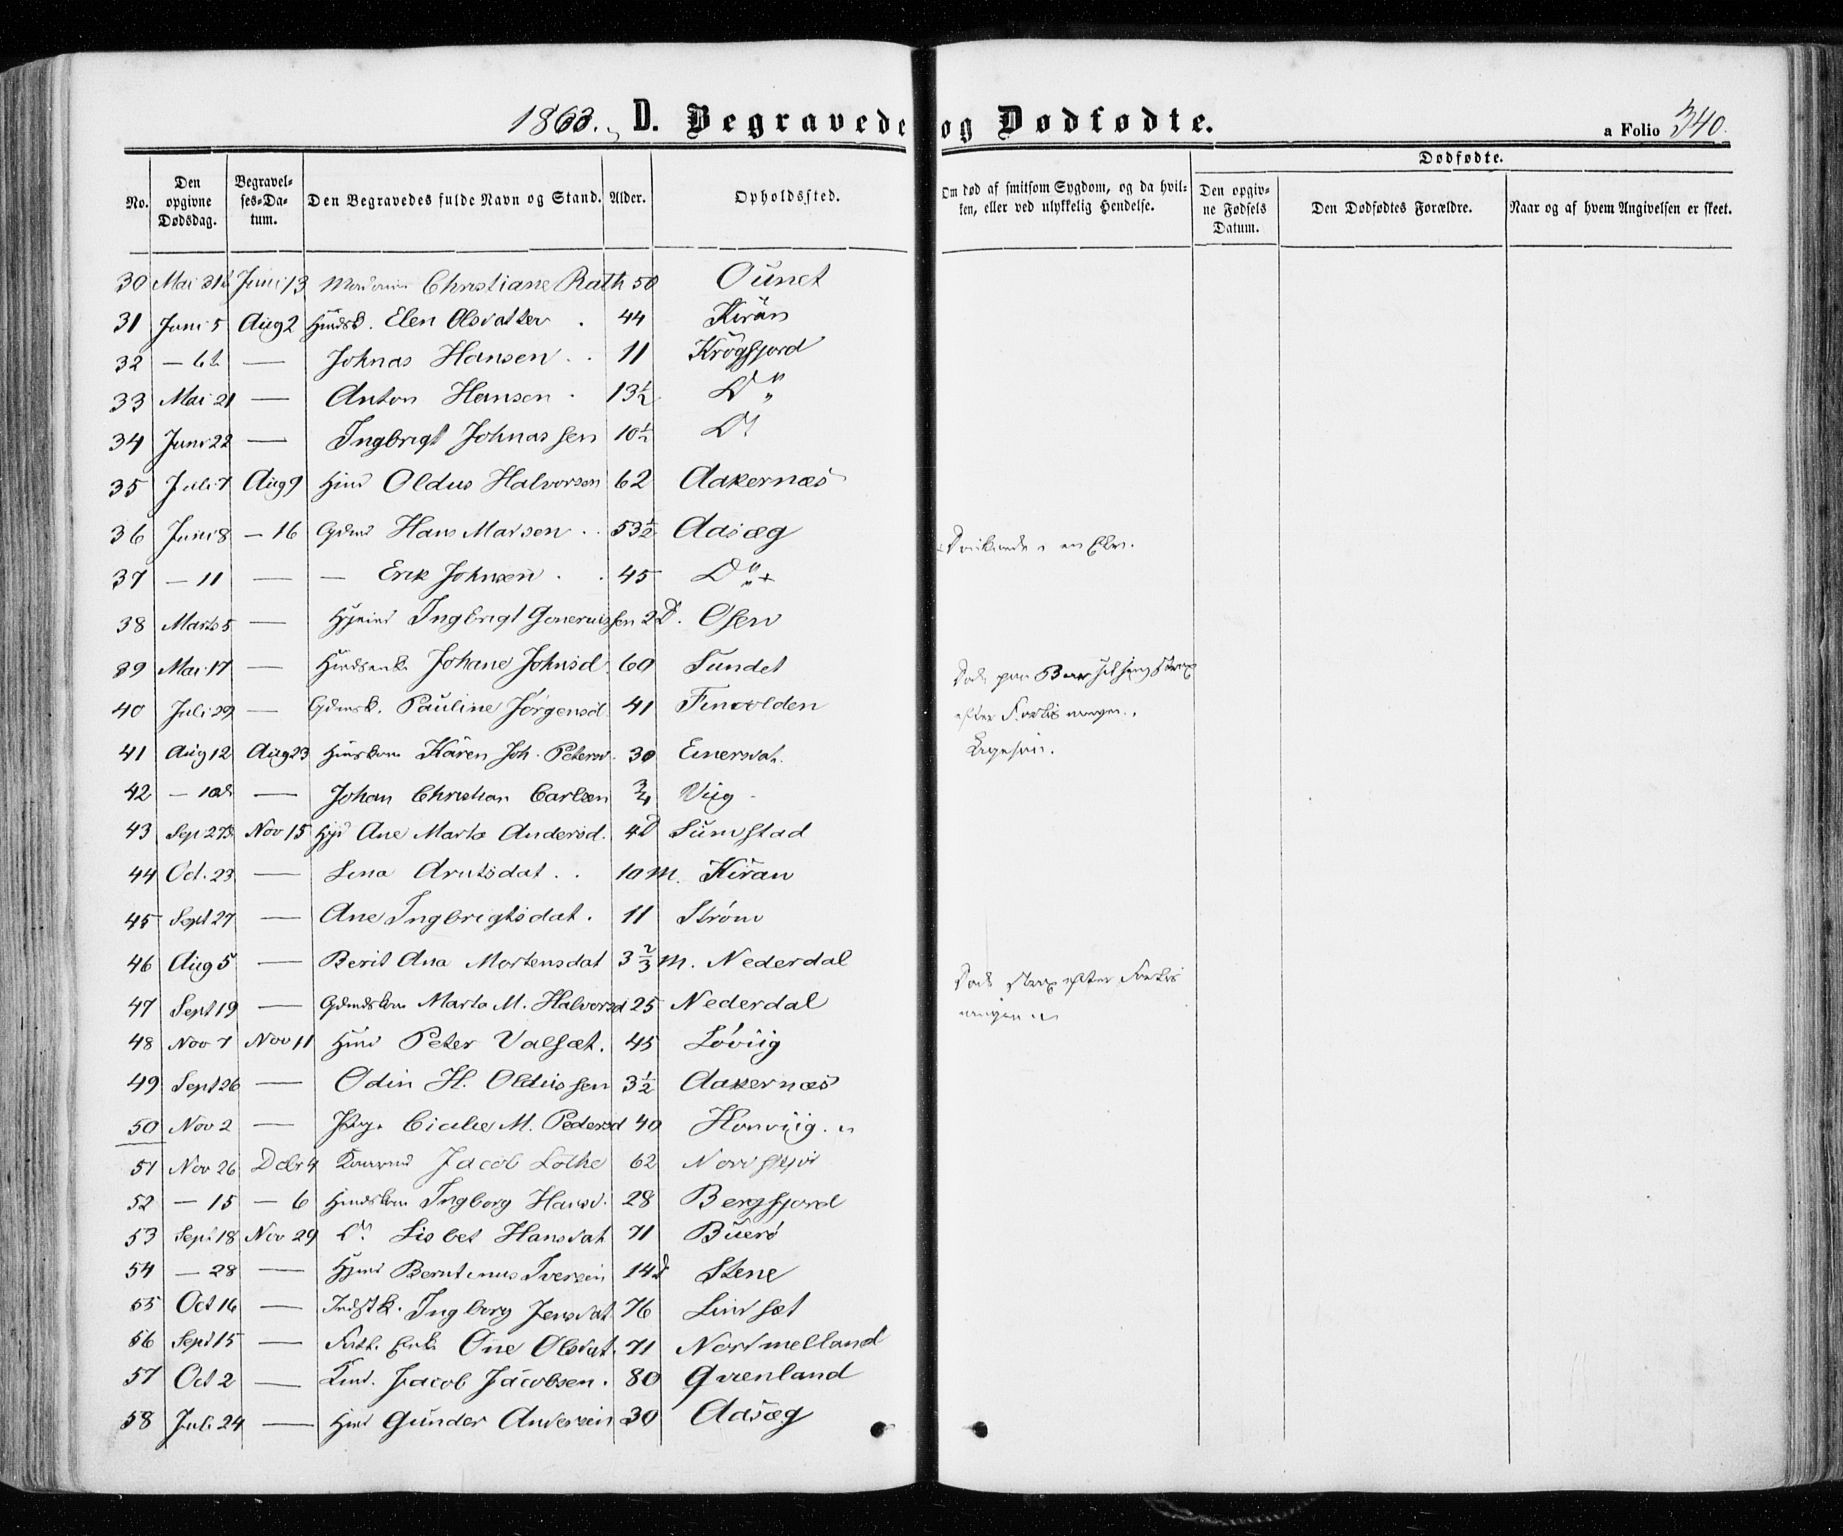 1863. D. Begravede og Dødfødte. a Folio 340.
Dødfødte.
No. Den opgivne Dødsdag. Begravelses-Datum. Den Begravedes fulde Navn og Stand. Alder. Opholdssted. Om død af smitsom Sygdom, og da hvilken, eller ved ulykkelig Hendelse. Den opgivne Fødsels Datum. Den Dødfødtes Forældre. Naar og af hvem Angivelsen er skeet.
30 Mai Juni 13 Christiane Rath 50
31 Juni 5 Aug 2 Elen Olsdatter . 44 Kiran
32 — 6 — Johnas Hansen . . 11 Krogfjord
33 Mai 21 — Anton Hansen . 13½ D "
34 Juni 22 — Ingbrigt Johnassen 10½ D
35 Juli 7 Aug 9 Oldus Halvorsen 62 Aakernæs
36 Juni 8 — 16 Gdmd Hans Madsen . . 53½ Aasæg
Druknede i en Elv.
37 — 11 — — Erik Johnsen . . 45 D "
38 Marts 5 — Ingbrigt 2 D. Osen
39 Mai 17 — Johane Johnsd. 60 Sundet
40 Juli 29 — Pauline Jørgensd. 41
Døde paa Barselseng strax efter Forløsningen.
41 Aug 12 Aug 23 Karen Joh. Petersd. 30
42 — — Johan Christian Carlsen ¾ Viig
43 Sep 27 Nov 15 Ane Marta Andersd. 4 D Sumstad
44 Oct. 23 — Lina Arntsdat . . 10 M. Kiran
45 Sept 27 — Ane Ingbrigtsdat . 11 Strøm
46 Aug 5 — Berit Ana Mortensdat 3⅔ M. Nederdal
47 Sept 19 — Marta M. Halvorsd 25 Nederdal
Døde strax efter Forløsningen
48 Nov 7 Nov 11 Peter Valsæt. 45 Løviig
49 Sept 26 — Odin H. Oldussen 3½ Aakernæs
50 Nov 2 — Cicilie M. Pedersd 40 Honviig
51 Nov 26 Dcbr 4 Jacob Lothe 62
52 — 15 — 6 Ingborg Hansd. 28 Bergfjord
53 Sept 18 Nov 29 D. Lisbet Hansdat 71 Buerø
54 — 28 — Berntinus Iversen 14 D Stene
55 Oct 16 — Ingborg Jensdat 76 Lindsæt
56 Sept 15 — Ane Olsdat. 71 Nordmelland
57 Oct 2 — Jacob Jacobsen . 80 Qvenland
58 Juli 24 — Gunder Andersen 30 Aasæg